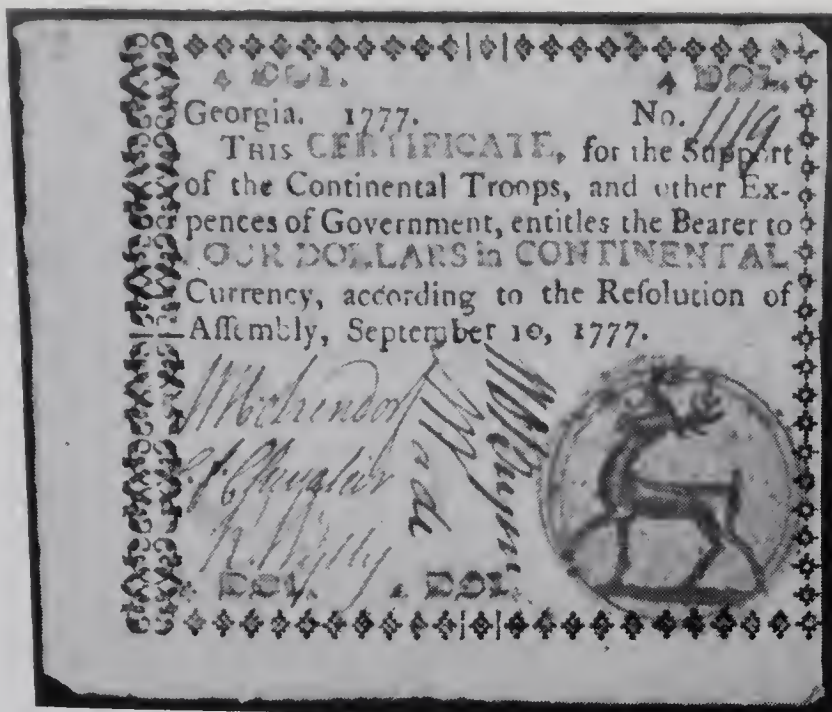 4 DOL. 4 DOL.
Georgia. 1777. No. 1119
THIS CERTIFICATE, for the Support
of the Continental Troops, and other Ex-
pences of Government, entitles the Bearer to
FOUR DOLLARS in CONTINENTAL
Currency, according to the Reſolution of
Aſſembly, September 10, 1777.
4 DOL. 4 DOL.